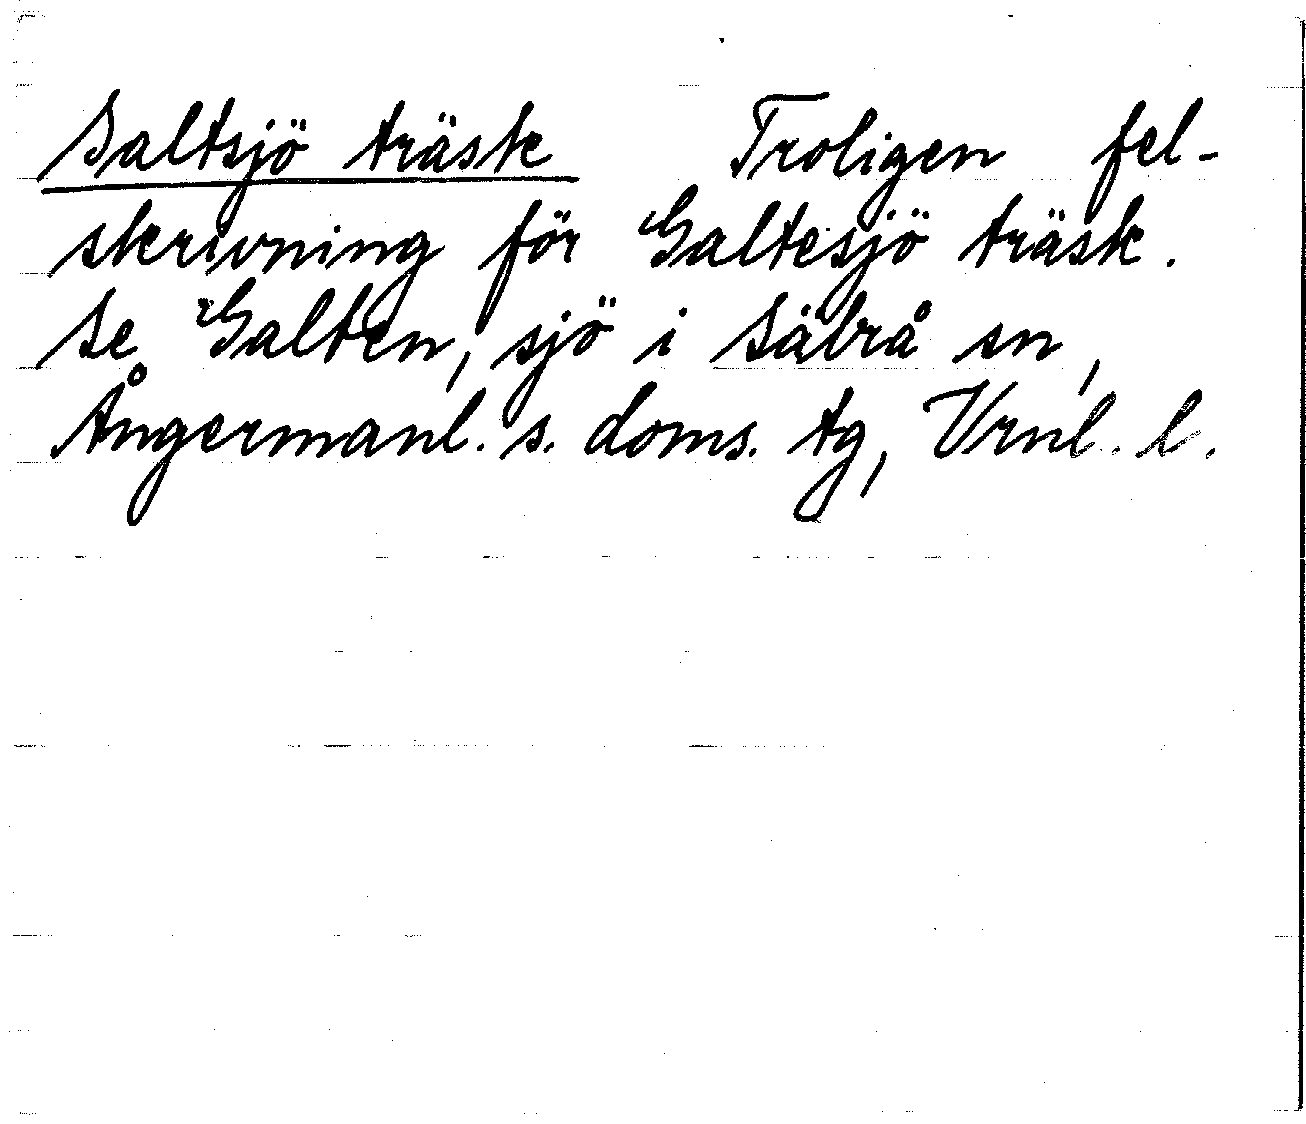 Saltsjö träsk Troligen fel-
skrivning för Galtesjö träsk.
Se Galten, sjö i Säbrå sn,
Ångermanl. s. doms. tg, Vrnl. l.